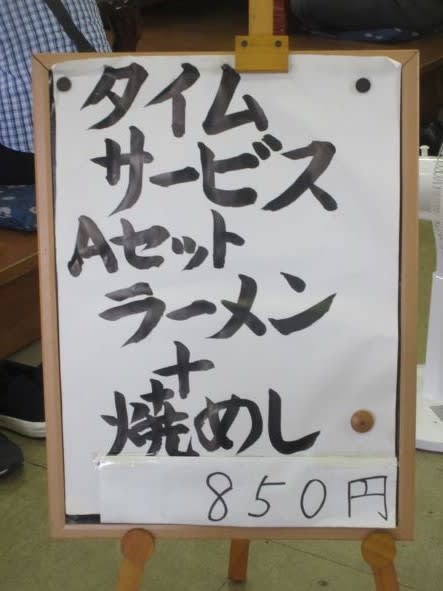 タイム
サービス
Aセット
ラーメン
+
焼めし
850円